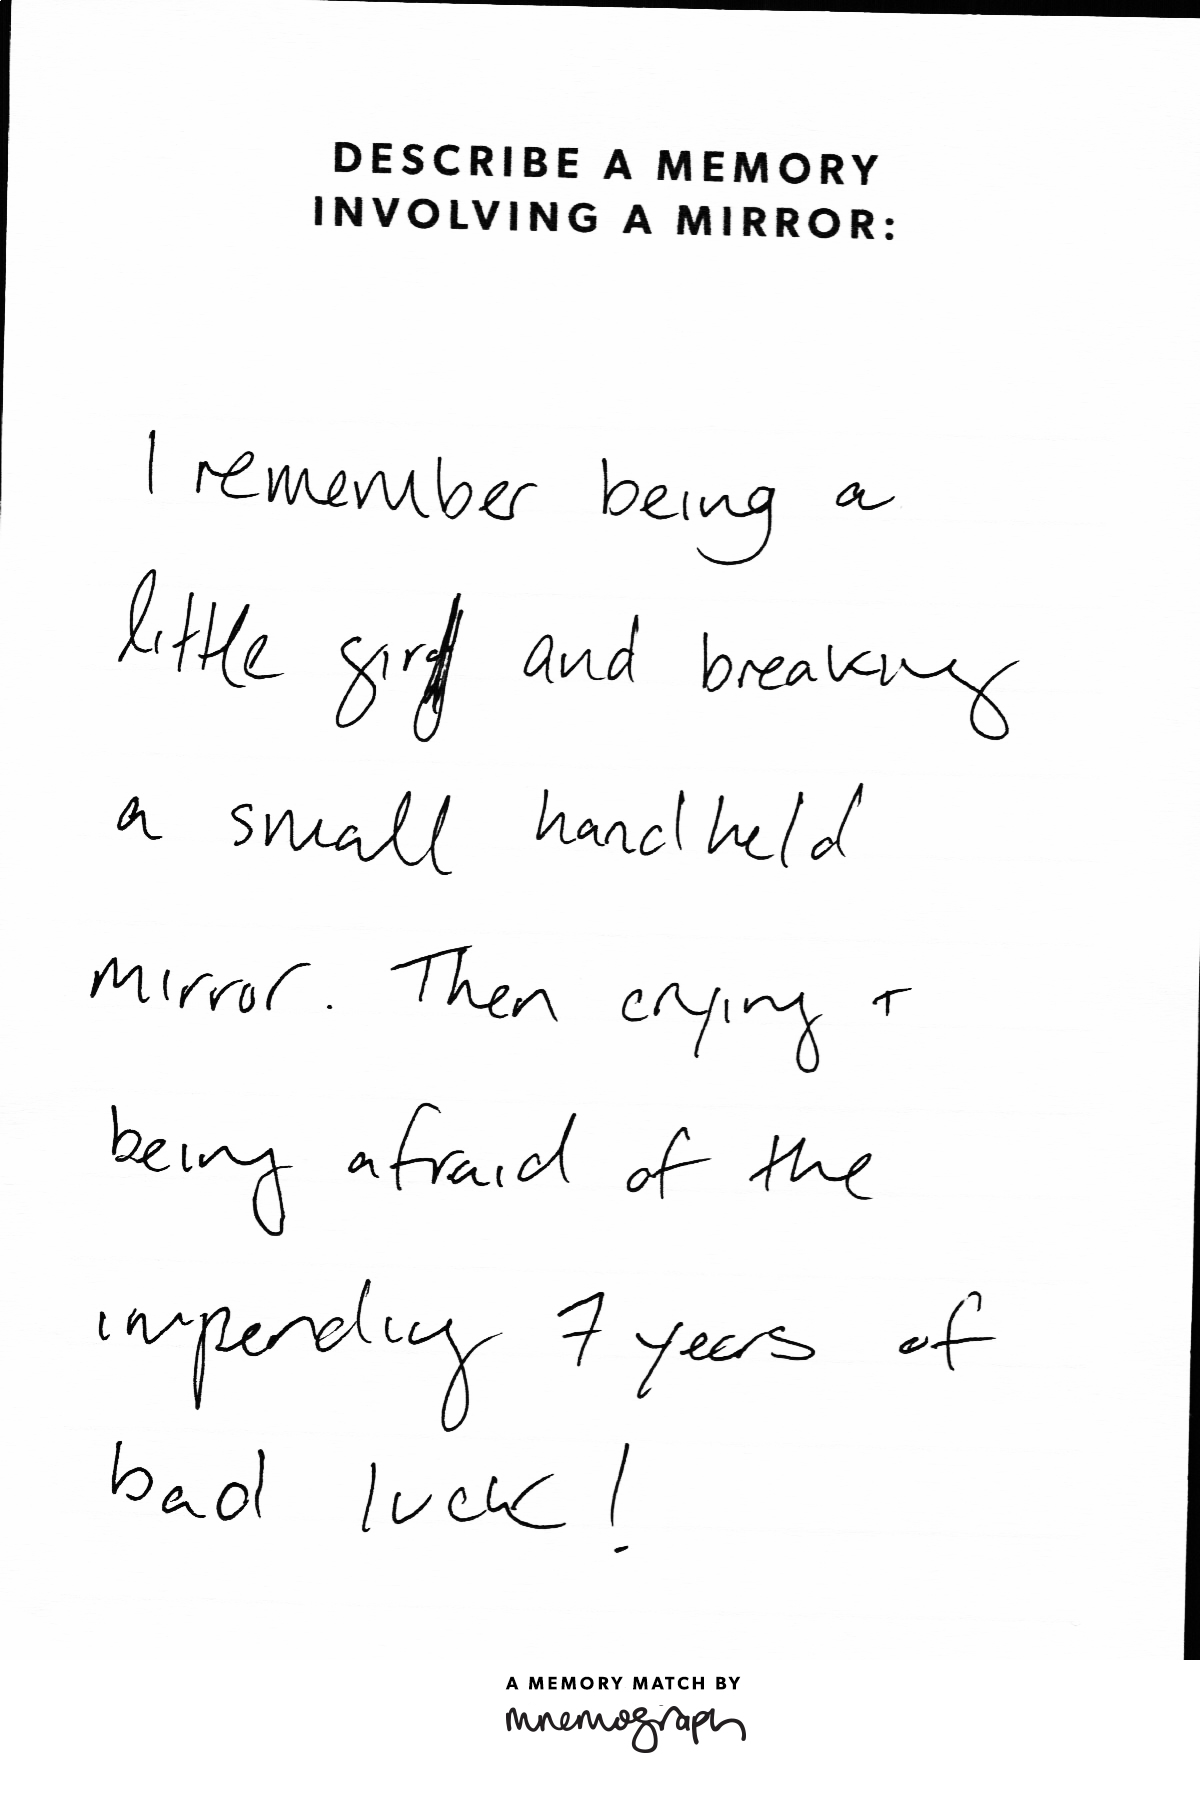 DESCRIBE A MEMORY
INVOLVING A MIRROR:
I remember being a
little girl and breaking
a small handheld
mirror. Then crying +
being afraid of the
impending 7 years of
bad luck!
A MEMORY MATCH BY
mnemograph